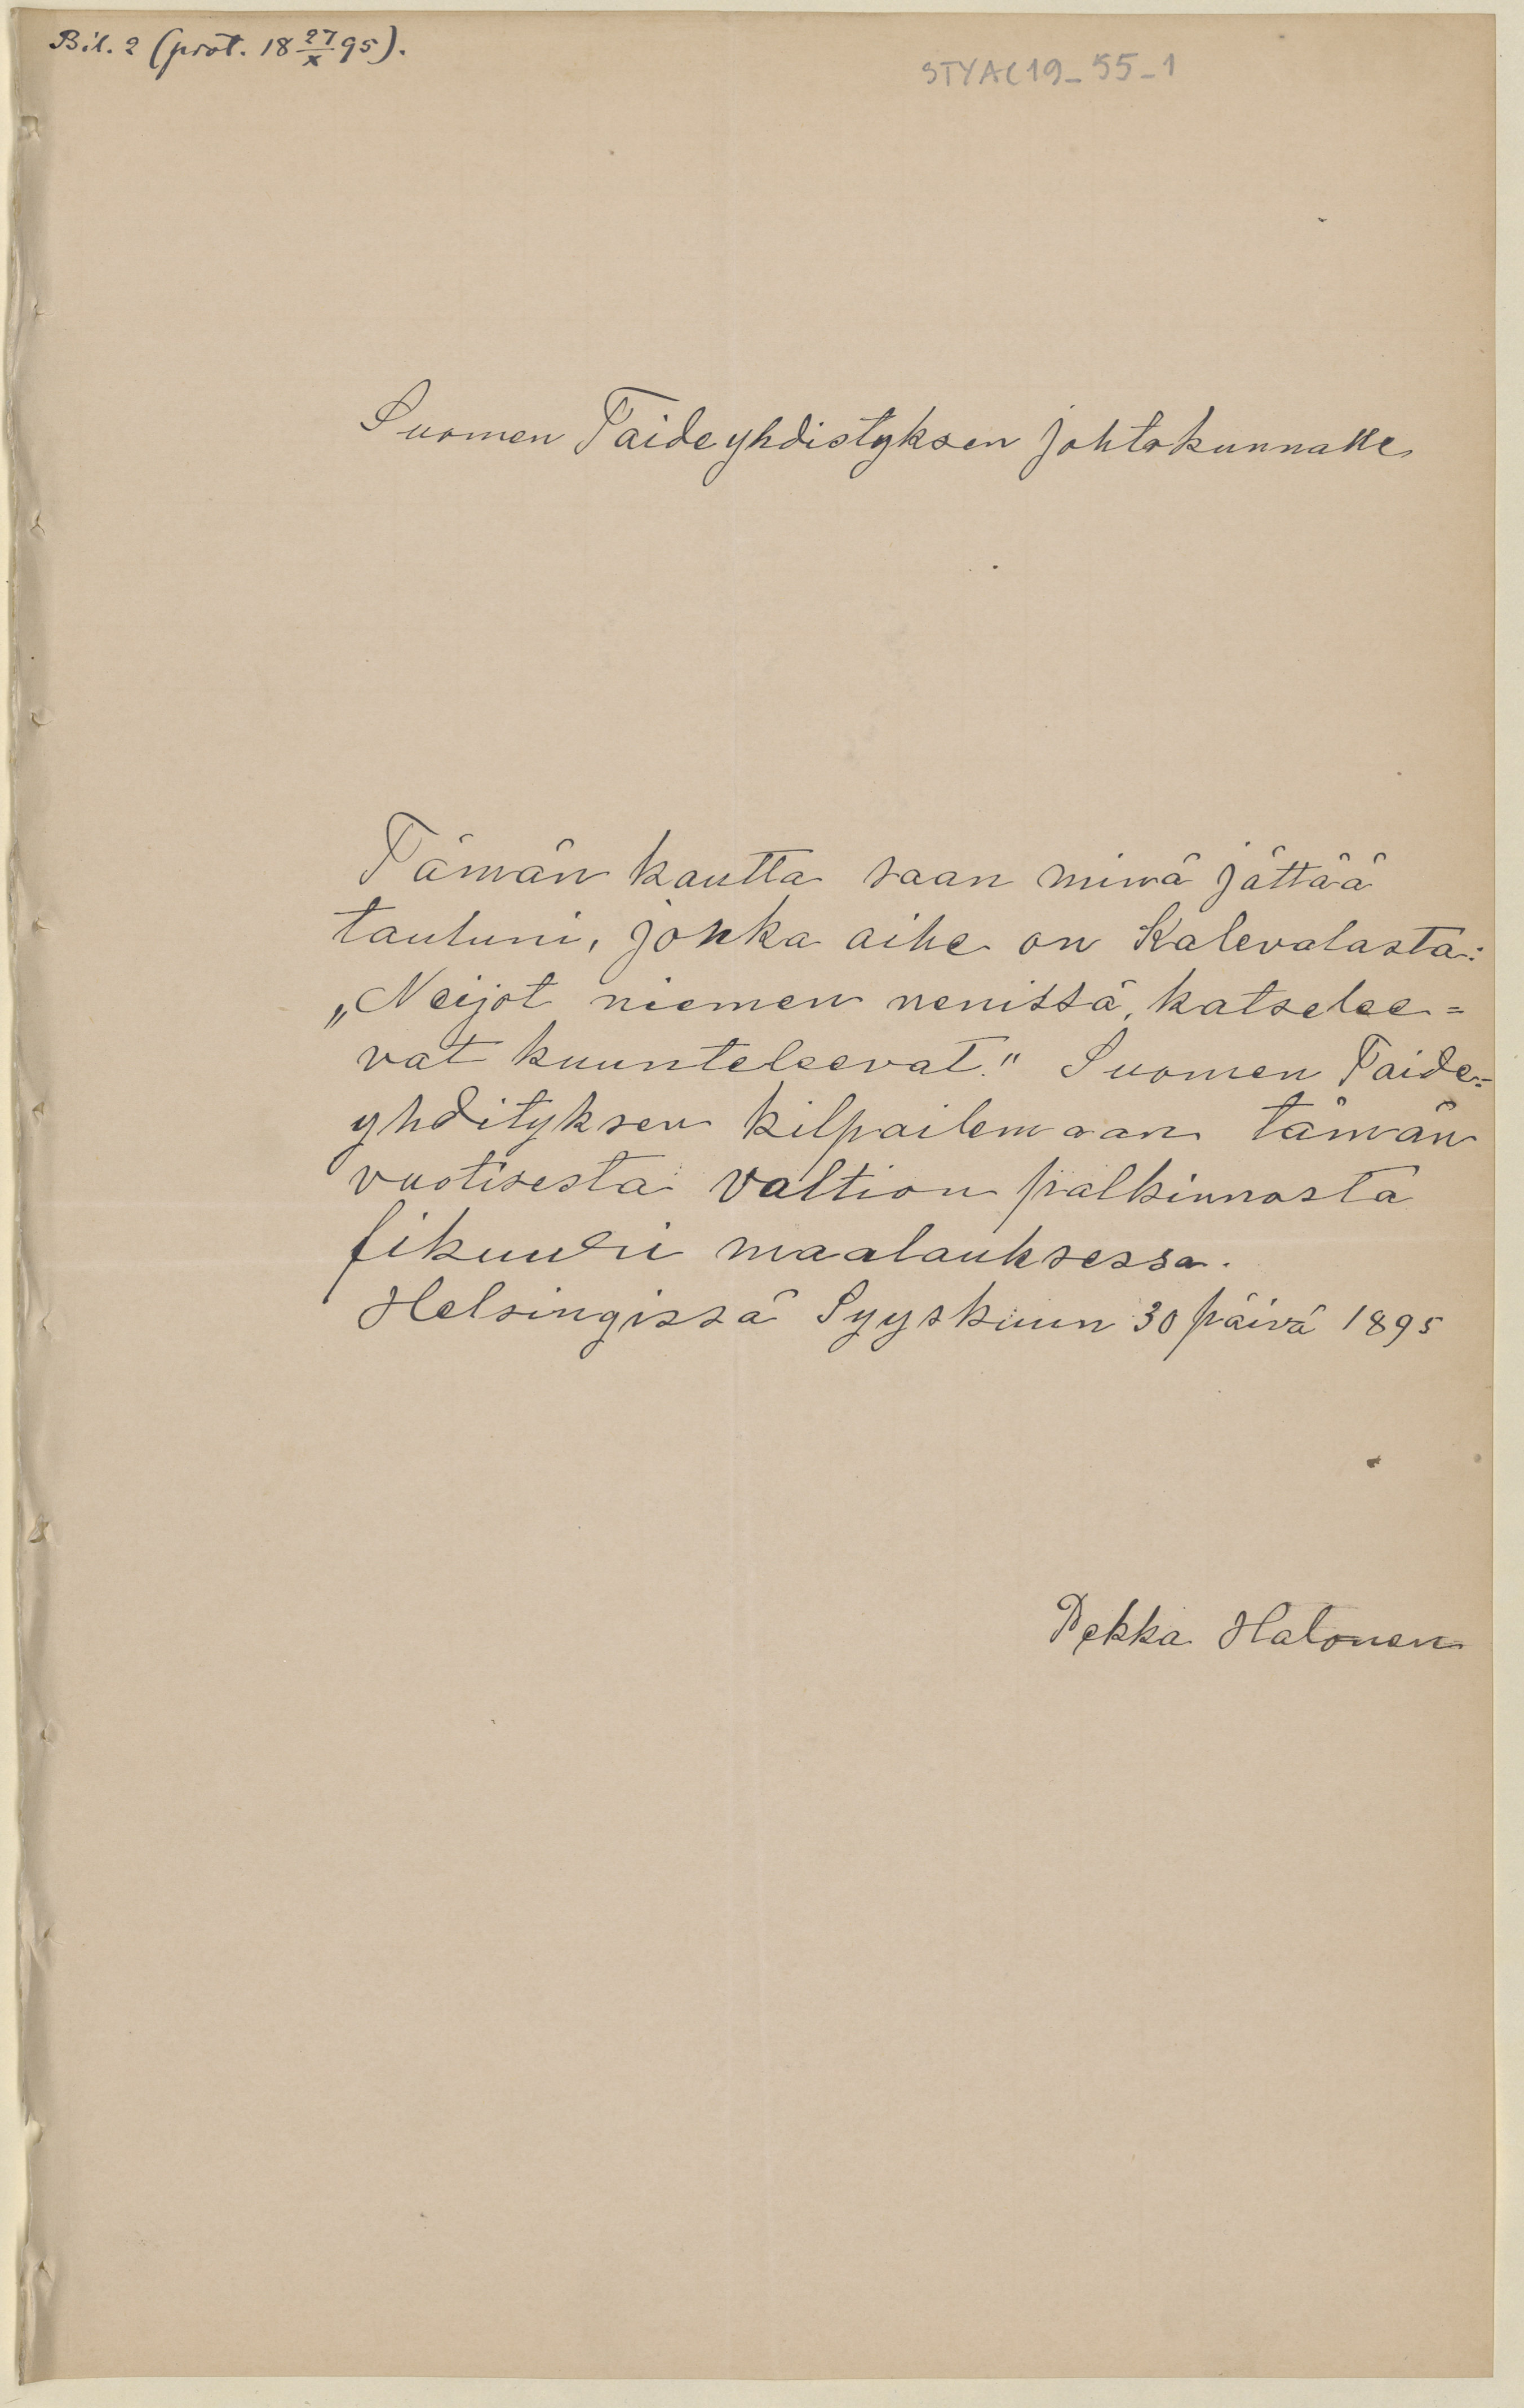 Bil. 2 (prot. 18 27/X 95).
STYAC19_55_1
Suomen Taideyhdistyksen johtokunnalle
Tämän kautta saan minä jättää
tauluni, jonka aihe on Kalevalasta:
„Neijot niemen nenissä, katselee=
vat kuunteleevat." Suomen Taide=
yhdityksen kilpailemaan tämän
vuotisesta valtion palkinnosta
fikuuri maalauksessa.
Helsingissä Syyskuun 30 päivä 1895
Pekka Halonen